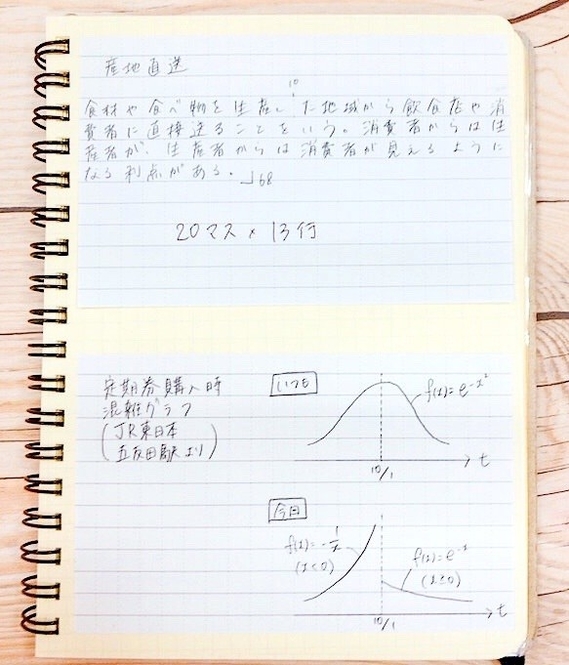 産地直送
10
食材や食べ物を生産した地域から飲食店や消
費者に直接送ることをいう。消費者からは生
産者が、生産者からは消費者が見えるように
なる利点がある。
68
20マス×13行
定期券購入時
混雑グラフ
(JR東日本
五反田駅より)
いつも
f(x)=e^-x²
10/1
t
今回
f(x)=-1/x
(x<0)
f(x)=e^-x
(x≥0)
10/1
t